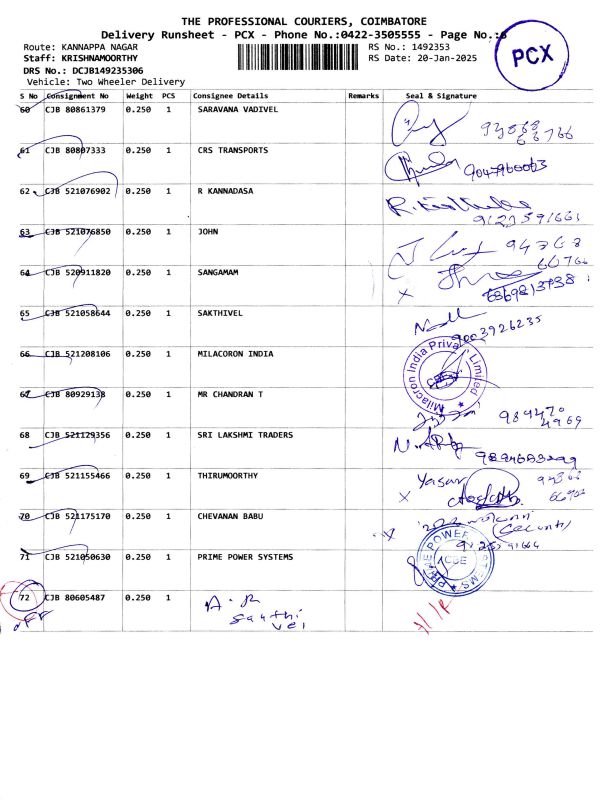 THE PROFESSIONAL COURIERS, COIMBATORE
Delivery Runsheet - PCX - Phone No.:0422-3505555 - Page No.:6
Route: KANNAPPA NAGAR
RS No.: 1492353
Staff: KRISHNAMOORTHY
RS Date: 20-Jan-2025
DRS No.: DCJB149235306
Vehicle: Two Wheeler Delivery
PCX
S No Consignment No Weight PCS Consignee Details Remarks Seal & Signature
60 CJB 80861379 0.250 1 SARAVANA VADIVEL
61 CJB 80807333 0.250 1 CRS TRANSPORTS
62 CJB 521076902 0.250 1 R KANNADASA
9127591661
63 CJB 521076850 0.250 1 JOHN
64 CJB 520911820 0.250 1 SANGAMAM
65 CJB 521058644 0.250 1 SAKTHIVEL
9003926235
66 CJB 521208106 0.250 1 MILACORON INDIA
Milacron India Private Limited
67 CJB 80929138 0.250 1 MR CHANDRAN T
989470
4969
68 CJB 521129356 0.250 1 SRI LAKSHMI TRADERS
69 CJB 521155466 0.250 1 THIRUMOORTHY
Yasar
70 CJB 521175170 0.250 1 CHEVANAN BABU
71 CJB 521050630 0.250 1 PRIME POWER SYSTEMS
PRIME POWER SYSTEMS
CBE
72 CJB 80605487 0.250 1 A. R
Santhi
vel